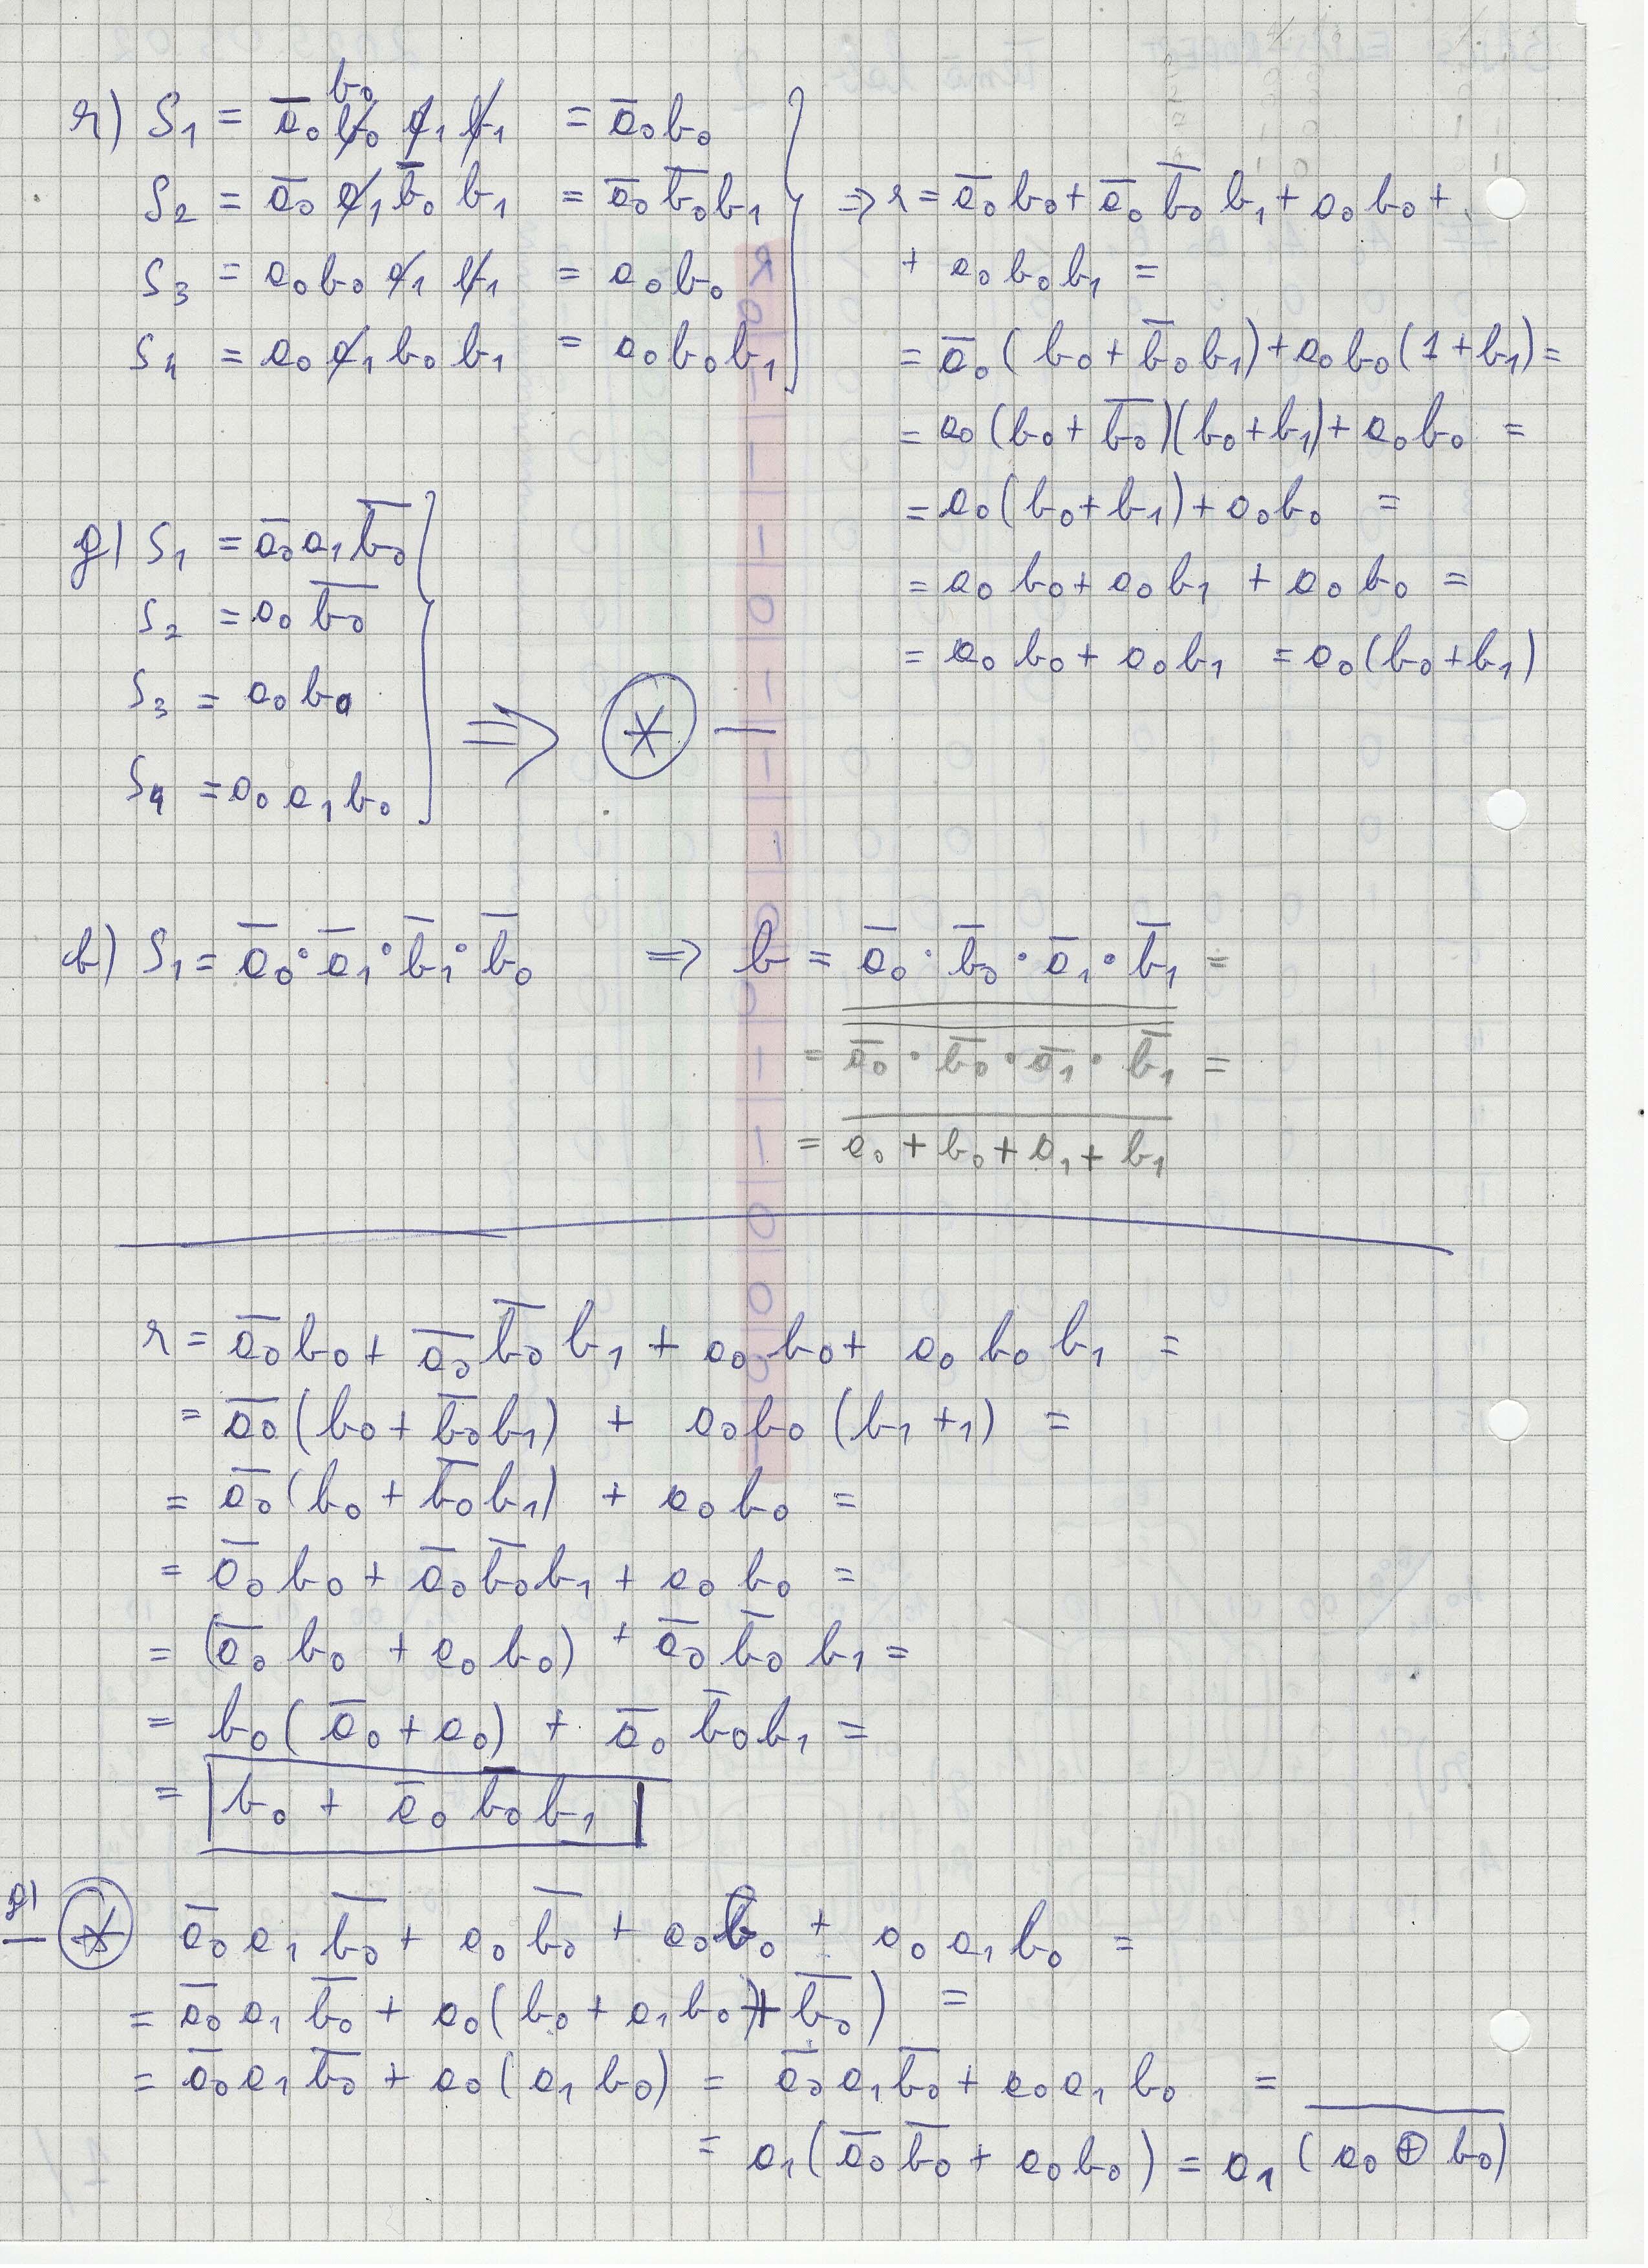 r) S₁ = a̅₀ b₀ a₁ b₁ = a̅₀ b₀
S₂ = a̅₀ a₁ b̅₀ b₁ = a̅₀ b̅₀ b₁
S₃ = a₀ b₀ a₁ b₁ = a₀ b₀
S₄ = a₀ a₁ b₀ b₁ = a₀ b₀ b₁
⇒ r = a̅₀ b₀ + a̅₀ b̅₀ b₁ + a₀ b₀ +
+ a₀ b₀ b₁ =
= a̅₀ (b₀ + b̅₀ b₁) + a₀ b₀ (1 + b₁) =
= a₀ (b₀ + b̅₀)(b₀ + b₁) + a₀ b₀ =
= a₀ (b₀ + b₁) + a₀ b₀ =
= a₀ b₀ + a₀ b₁ + a₀ b₀ =
= a₀ b₀ + a₀ b₁ = a₀ (b₀ + b₁)
g) S₁ = a̅₀ a₁ b̅₀
S₂ = a₀ b̅₀
S₃ = a₀ b₀
S₄ = a₀ a₁ b₀
⇒ * —
b) S₁ = a̅₀ · a̅₁ · b̅₁ · b̅₀ ⇒ b = a̅₀ · b̅₀ · a̅₁ · b̅₁ =
= a̅₀ · b̅₀ · a̅₁ · b̅₁ =
= a₀ + b₀ + a₁ + b₁
r = a̅₀ b₀ + a̅₀ b̅₀ b₁ + a₀ b₀ + a₀ b₀ b₁ =
= a̅₀ (b₀ + b̅₀ b₁) + a₀ b₀ (b₁ + 1) =
= a̅₀ (b₀ + b̅₀ b₁) + a₀ b₀ =
= a̅₀ b₀ + a̅₀ b̅₀ b₁ + a₀ b₀ =
= (a̅₀ b₀ + a₀ b₀) + a̅₀ b̅₀ b₁ =
= b₀ (a̅₀ + a₀) + a̅₀ b̅₀ b₁ =
= b₀ + a̅₀ b̅₀ b₁
g) — * a̅₀ a₁ b̅₀ + a₀ b̅₀ + a₀ b₀ + a₀ a₁ b₀ =
= a̅₀ a₁ b̅₀ + a₀ (b₀ + a₁ b₀) + b̅₀) =
= a̅₀ a₁ b̅₀ + a₀ (a₁ b₀) = a̅₀ a₁ b̅₀ + a₀ a₁ b₀ =
= a₁ (a̅₀ b̅₀ + a₀ b₀) = a₁ (a₀ ⊕ b₀)